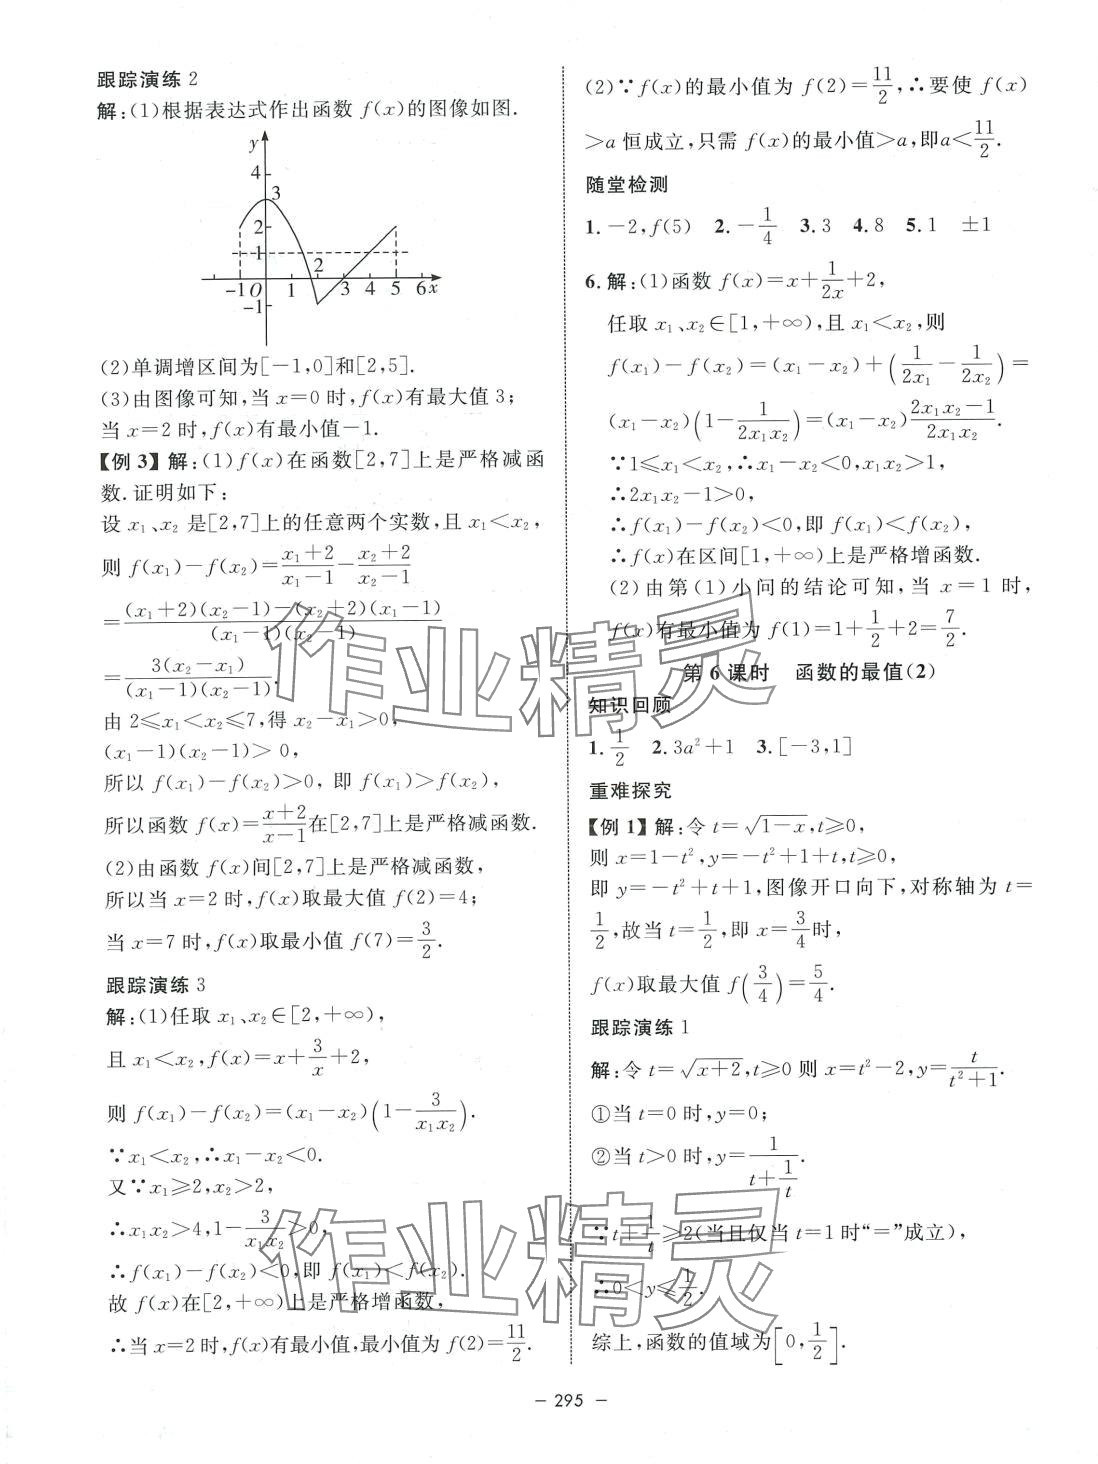 跟踪演练 2
解:(1)根据表达式作出函数 f(x)的图像如图.
y
4
3
2
1
2
-1 O 1 3 4 5 6 x
-1
(2)单调增区间为[-1,0]和[2,5].
(3)由图像可知,当 x=0 时,f(x)有最大值 3;
当 x=2 时,f(x)有最小值-1.
【例 3】解:(1)f(x)在函数[2,7]上是严格减函
数.证明如下:
设 x₁、x₂ 是[2,7]上的任意两个实数,且 x₁<x₂,
则 f(x₁)-f(x₂)=(x₁+2)/(x₁-1)-(x₂+2)/(x₂-1)
=((x₁+2)(x₂-1)-(x₂+2)(x₁-1))/((x₁-1)(x₂-1))
=3(x₂-x₁)/((x₁-1)(x₂-1)).
由 2≤x₁<x₂≤7,得 x₂-x₁>0,
(x₁-1)(x₂-1)>0,
所以 f(x₁)-f(x₂)>0,即 f(x₁)>f(x₂),
所以函数 f(x)=(x+2)/(x-1)在[2,7]上是严格减函数.
(2)由函数 f(x)间[2,7]上是严格减函数,
所以当 x=2 时,f(x)取最大值 f(2)=4;
当 x=7 时,f(x)取最小值 f(7)=3/2.
跟踪演练 3
解:(1)任取 x₁、x₂∈[2,+∞),
且 x₁<x₂,f(x)=x+3/x+2,
则 f(x₁)-f(x₂)=(x₁-x₂)(1-3/(x₁x₂)).
∵x₁<x₂,∴x₁-x₂<0.
又∵x₁≥2,x₂>2,
∴x₁x₂>4,1-3/(x₁x₂)>0,
∴f(x₁)-f(x₂)<0,即 f(x₁)<f(x₂).
故 f(x)在[2,+∞)上是严格增函数,
∴当 x=2 时,f(x)有最小值,最小值为 f(2)=11/2.
(2)∵f(x)的最小值为 f(2)=11/2,∴要使 f(x)
>a 恒成立,只需 f(x)的最小值>a,即a<11/2.
随堂检测
1.-2,f(5) 2.-1/4 3.3 4.8 5.1 ±1
6.解:(1)函数 f(x)=x+1/(2x)+2,
任取 x₁、x₂∈[1,+∞),且 x₁<x₂,则
f(x₁)-f(x₂)=(x₁-x₂)+(1/(2x₁)-1/(2x₂))=
(x₁-x₂)(1-1/(2x₁x₂))=(x₁-x₂)(2x₁x₂-1)/(2x₁x₂).
∵1≤x₁<x₂,∴x₁-x₂<0,x₁x₂>1,
∴2x₁x₂-1>0,
∴f(x₁)-f(x₂)<0,即 f(x₁)<f(x₂),
∴f(x)在区间[1,+∞)上是严格增函数.
(2)由第(1)小问的结论可知,当 x=1 时,
f(x)有最小值为 f(1)=1+1/2+2=7/2.
第 6 课时 函数的最值(2)
知识回顾
1.1/2 2.3a²+1 3.[-3,1]
重难探究
【例 1】解:令 t=√(1-x),t≥0,
则 x=1-t²,y=-t²+1+t,t≥0,
即 y=-t²+t+1,图像开口向下,对称轴为 t=
1/2,故当 t=1/2,即 x=3/4时,
f(x)取最大值 f(3/4)=5/4.
跟踪演练 1
解:令 t=√(x+2),t≥0 则 x=t²-2,y=t/(t²+1).
①当 t=0 时,y=0;
②当 t>0 时,y=1/(t+1/t).
∵t+1/t≥2(当且仅当 t=1 时“=”成立),
∴0<y≤1/2.
综上,函数的值域为[0,1/2].
- 295 -
作业精灵
作业精灵